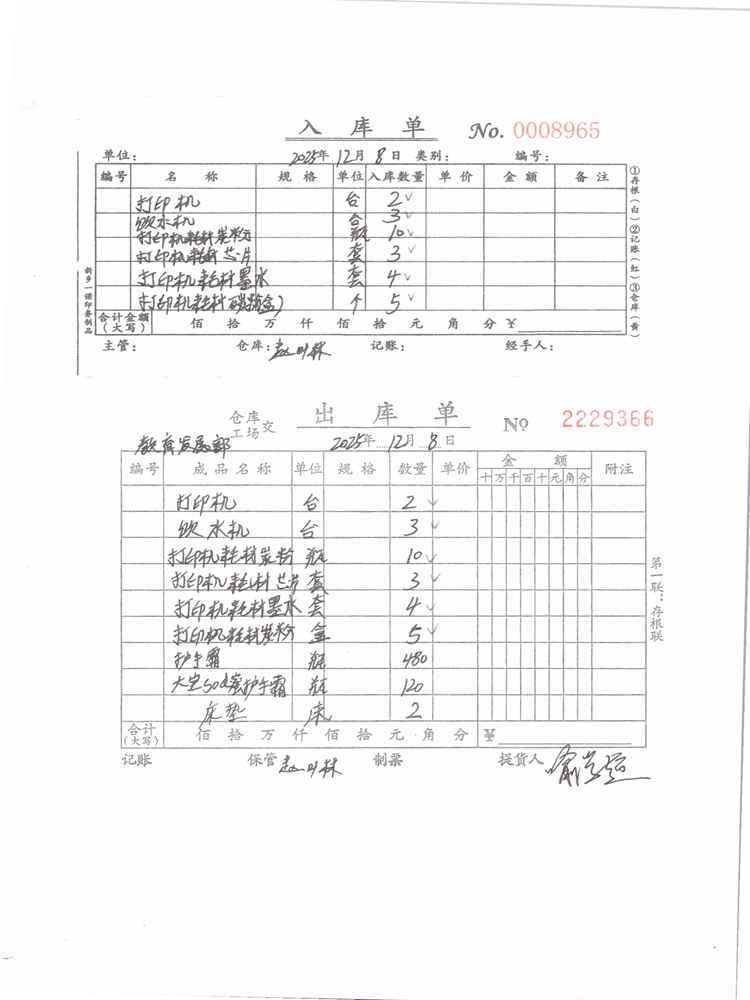 入 库 单 No. 0008965
单位： 2025年 12月 8日 类别： 编号：
编号 名 称 规 格 单位 入库数量 单 价 金 额 备 注
打印机 台 2
饮水机 台 3
打印机耗材炭粉 瓶 10
打印机耗材芯片 套 3
打印机耗材墨水 套 4
打印机耗材 个 5
合计金额（大写） 佰 拾 万 仟 佰 拾 元 角 分 ¥
主管： 仓库： 记账： 经手人：
①存根（白）②记账（红）③仓库（黄）
新乡一诺印务制品
仓库 工场 交 出 库 单 No 2229366
教育发展部 2025年 12月 8日
编号 成品名称 单位 规 格 数量 单价 金 额 附注
十 万 千 百 十 元 角 分
打印机 台 2
饮水机 台 3
打印机耗材炭粉 瓶 10
打印机耗材芯片 套 3
打印机耗材墨水 套 4
打印机耗材炭粉 盒 5
护手霜 瓶 480
大宝SOD蜜护手霜 瓶 120
床垫 床 2
合计（大写） 佰 拾 万 仟 佰 拾 元 角 分 ¥
记账 保管 制票 提货人
第一联：存根联